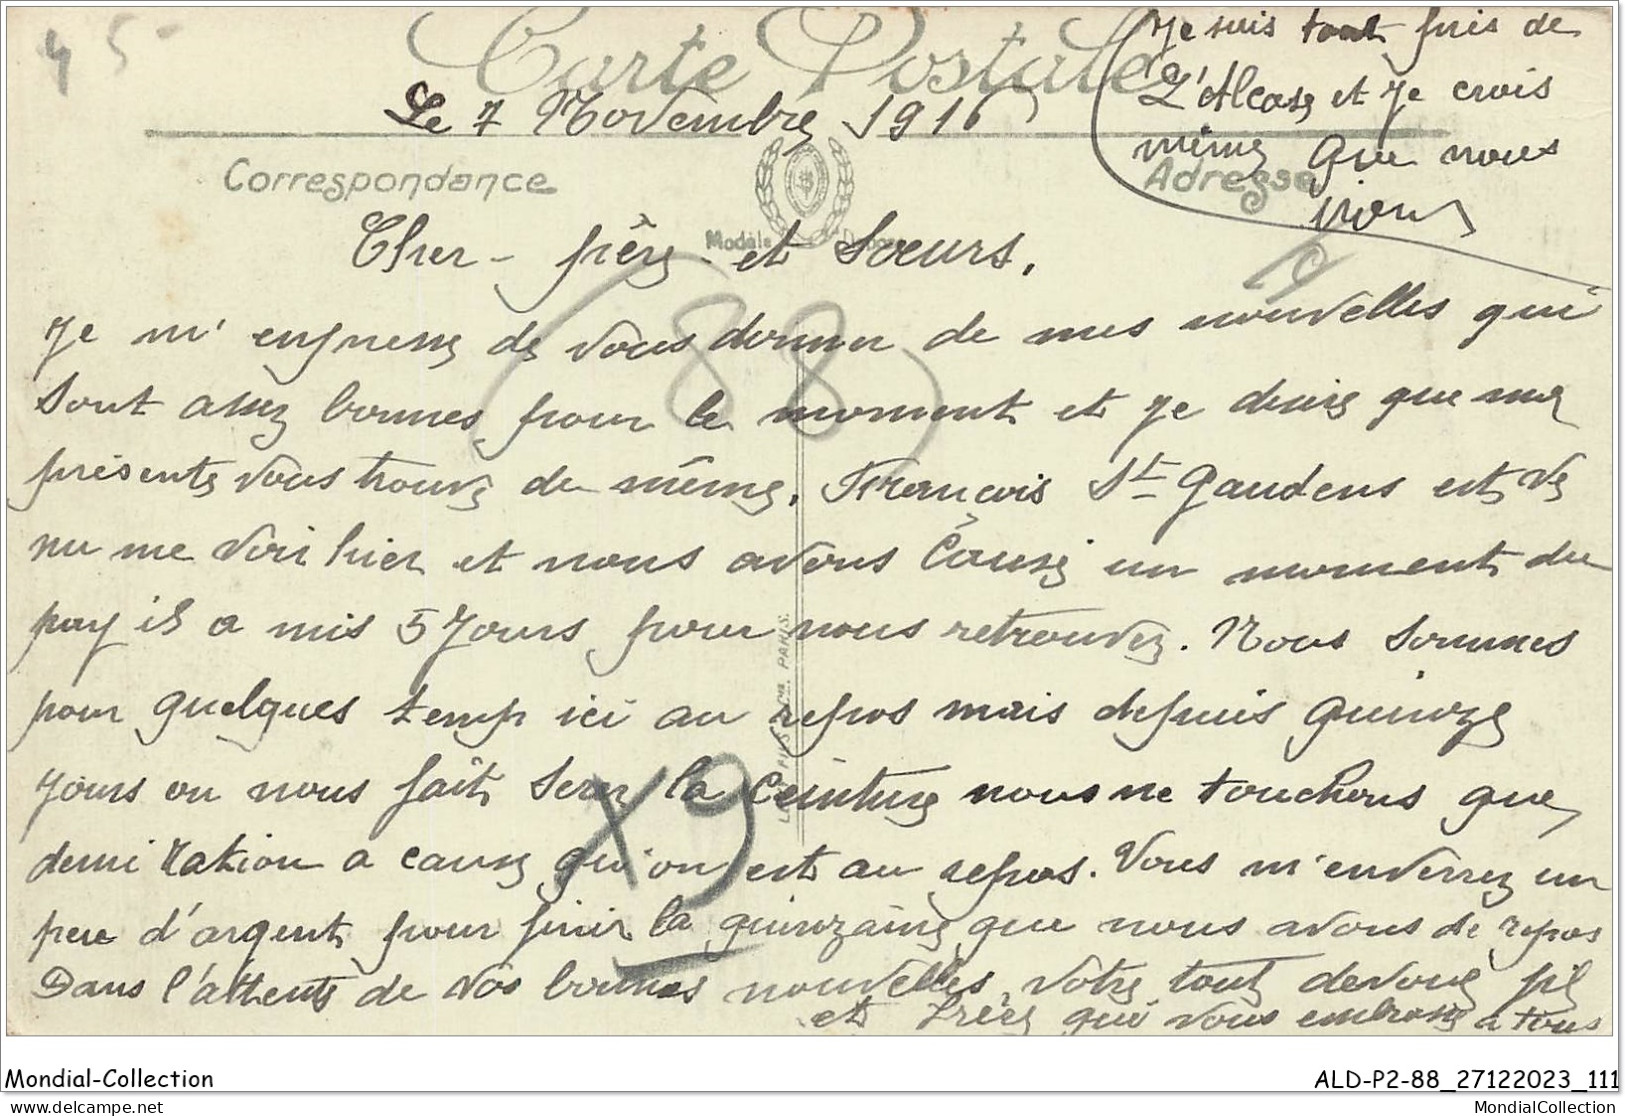 45
Carte Postale
Je suis tout près de
L'Alcase et je crois
même que nous
irons
Le 7 Novembre 1916
Correspondance
Adresse
Modèle Déposé
Cher frère et Sœurs.
(88)
Je m'empresse de vous donner de mes nouvelles qui
sont assez bonnes pour le moment et je désire que ma
présente vous trouve de même. François St Gaudens est ve
nu me voir hier et nous avons causé un moment du
pay il a mis 5 Jours pour nous retrouver. Nous sommes
pour quelques temp ici au repos mais depuis quinze
jours on nous fait serer la ceinture nous ne touchons que
demi ration a cause qu'on est au repos. Vous m'enverrez un
peu d'argent pour finir la quinzaine que nous avons de repos
Dans l'attente de vos bonnes nouvelles votre tout devoué fil
et frère qui vous embrasse a tous
X9
PARIS.
Mondial-Collection
ALD-P2-88_27122023_111
www.delcampe.net
MondialCollection